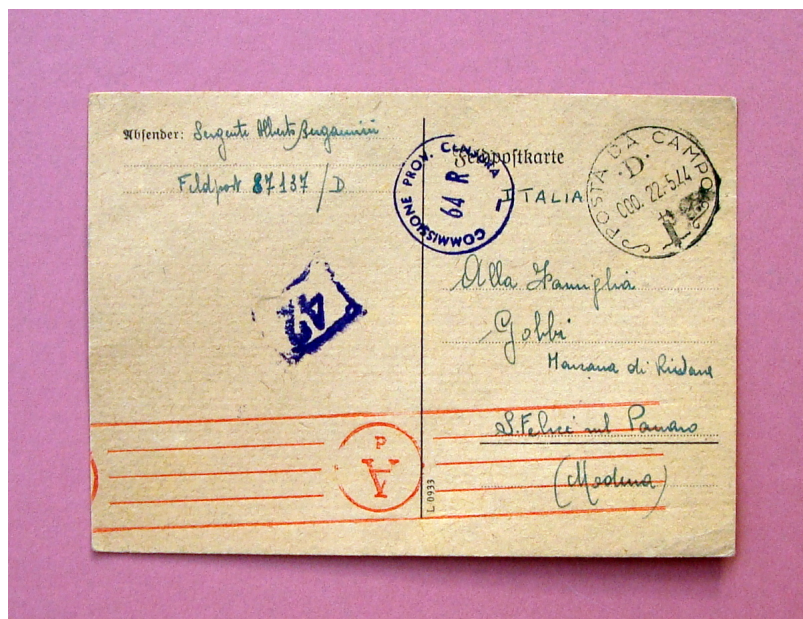 Absender: Sergente Alberto Bergamini
Feldpost 87137/D
Feldpostkarte
ITALIA
COMMISSIONE PROV. CENSURA
64 R
POSTA DA CAMPO
.D.
000. 22.5.44
42
Alla Famiglia
Gobbi
di
S. Felice sul Panaro
(Modena)
A
d
L 0933